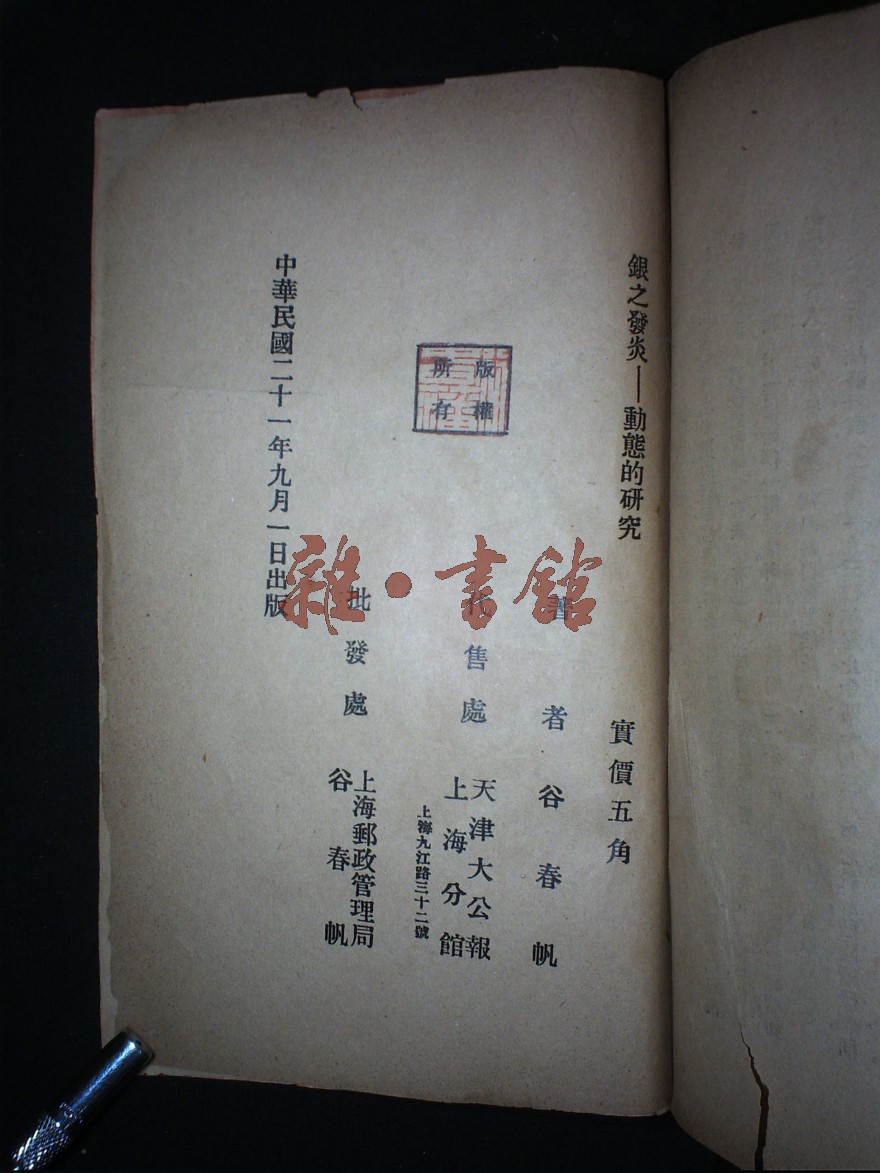 銀之發炎──動態的研究
實價五角
著者 谷春帆
代售處 天津大公報
上海分館
上海九江路三十二號
版權
所有
批發處 上海郵政管理局
谷春帆
中華民國二十一年九月一日出版
雜·書館